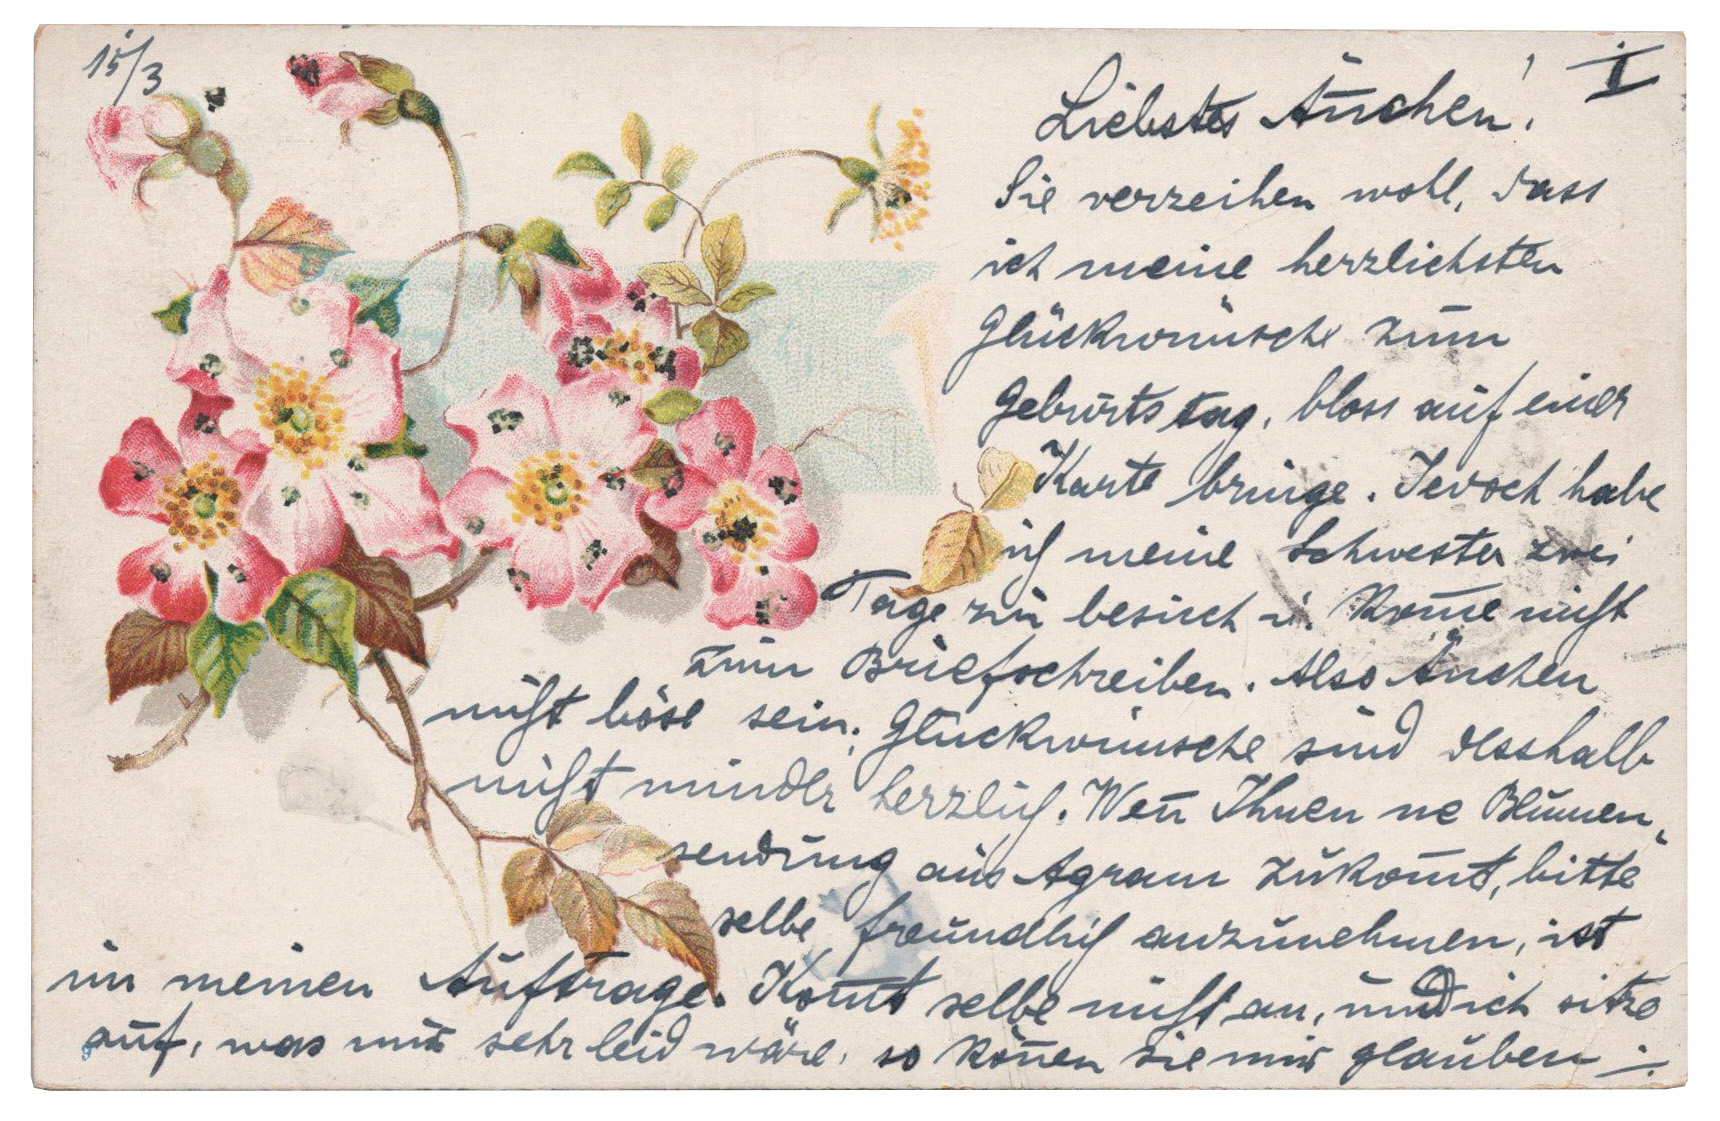 15/3
I
Liebstes Añchen!
Sie verzeihen wohl, dass
ich meine herzlichsten
Glückwünsche zum
Geburtstag, bloss auf einer
Karte bringe. Jedoch habe
ich meine Schwester zwei
Tage zu besuch u. kom̄e nicht
zum Briefschreiben. Also Añchen
nicht böse sein, Glückwünsche sind desshalb
nicht minder herzlich. Wen̄ Ihnen ne Blumen,
sendung aus Agram zukom̄t, bitte
selbe freundlich anzunehmen, ist
in meinen Auftrage. Kom̄t selbe nicht an, und ich sitze
auf, was mir sehr leid wäre, so kön̄en sie mir glauben –: